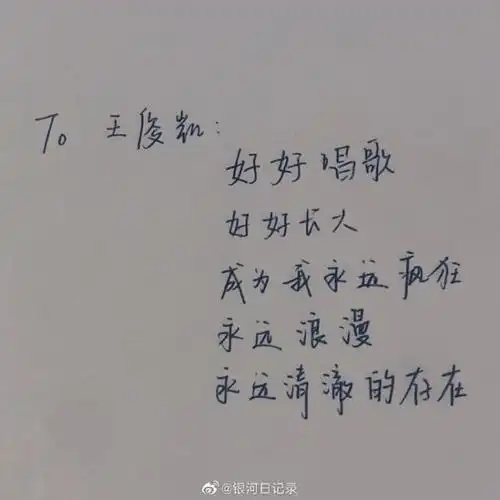 To 王俊凯:
好好唱歌
好好长大
成为我永远疯狂
永远浪漫
永远清澈的存在
@银河日记录